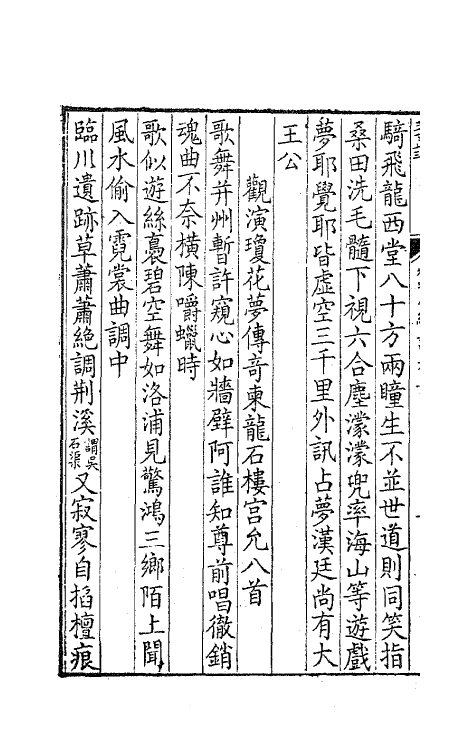 騎飛龍西堂八十方兩瞳生不並世道則同笑指
桑田洗毛髓下視六合塵濛濛兜率海山等遊戲
夢耶覺耶皆虛空三千里外訊占夢漢廷尚有大
王公
觀演瓊花夢傳奇柬龍石樓宮允八首
歌舞并州暫許窺心如牆壁阿誰知尊前唱徹銷
魂曲不奈橫陳嚼蠟時
歌似遊絲裊碧空舞如洛浦見驚鴻三鄉陌上聞
風水偷入霓裳曲調中
臨川遺跡草蕭蕭絶調荆溪謂吳石渠又寂寥自掐檀痕